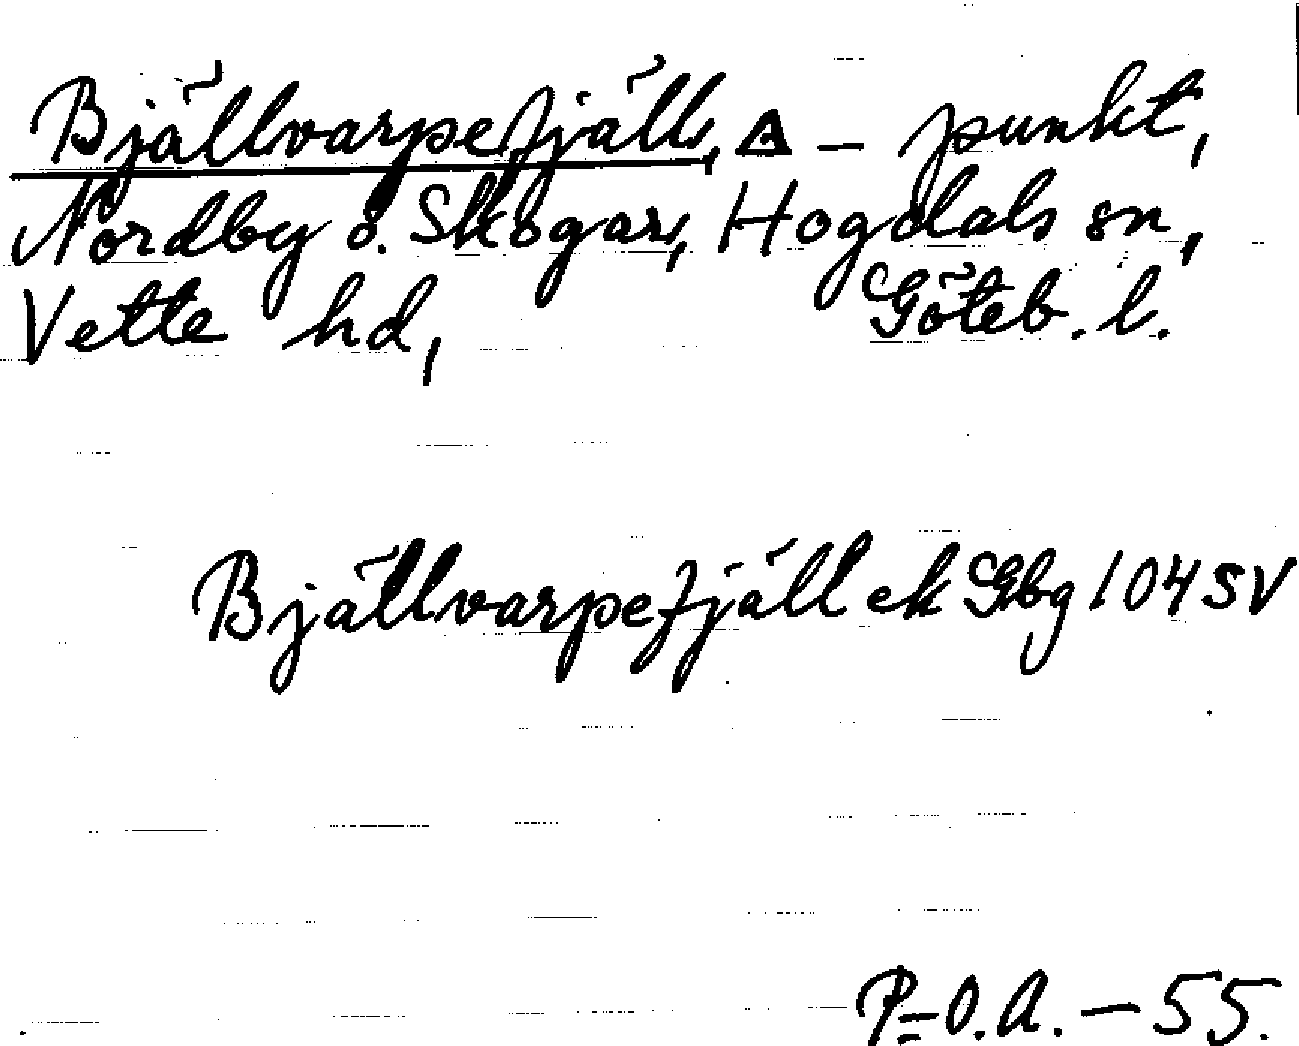 Bjällvarpefjäll, Δ – punkt,
Nordby o. Skogar, Hogdals sn,
Vette hd, Göteb. l.
Bjällvarpefjäll ek Gbg 104 SV
P-O. A. – 55.